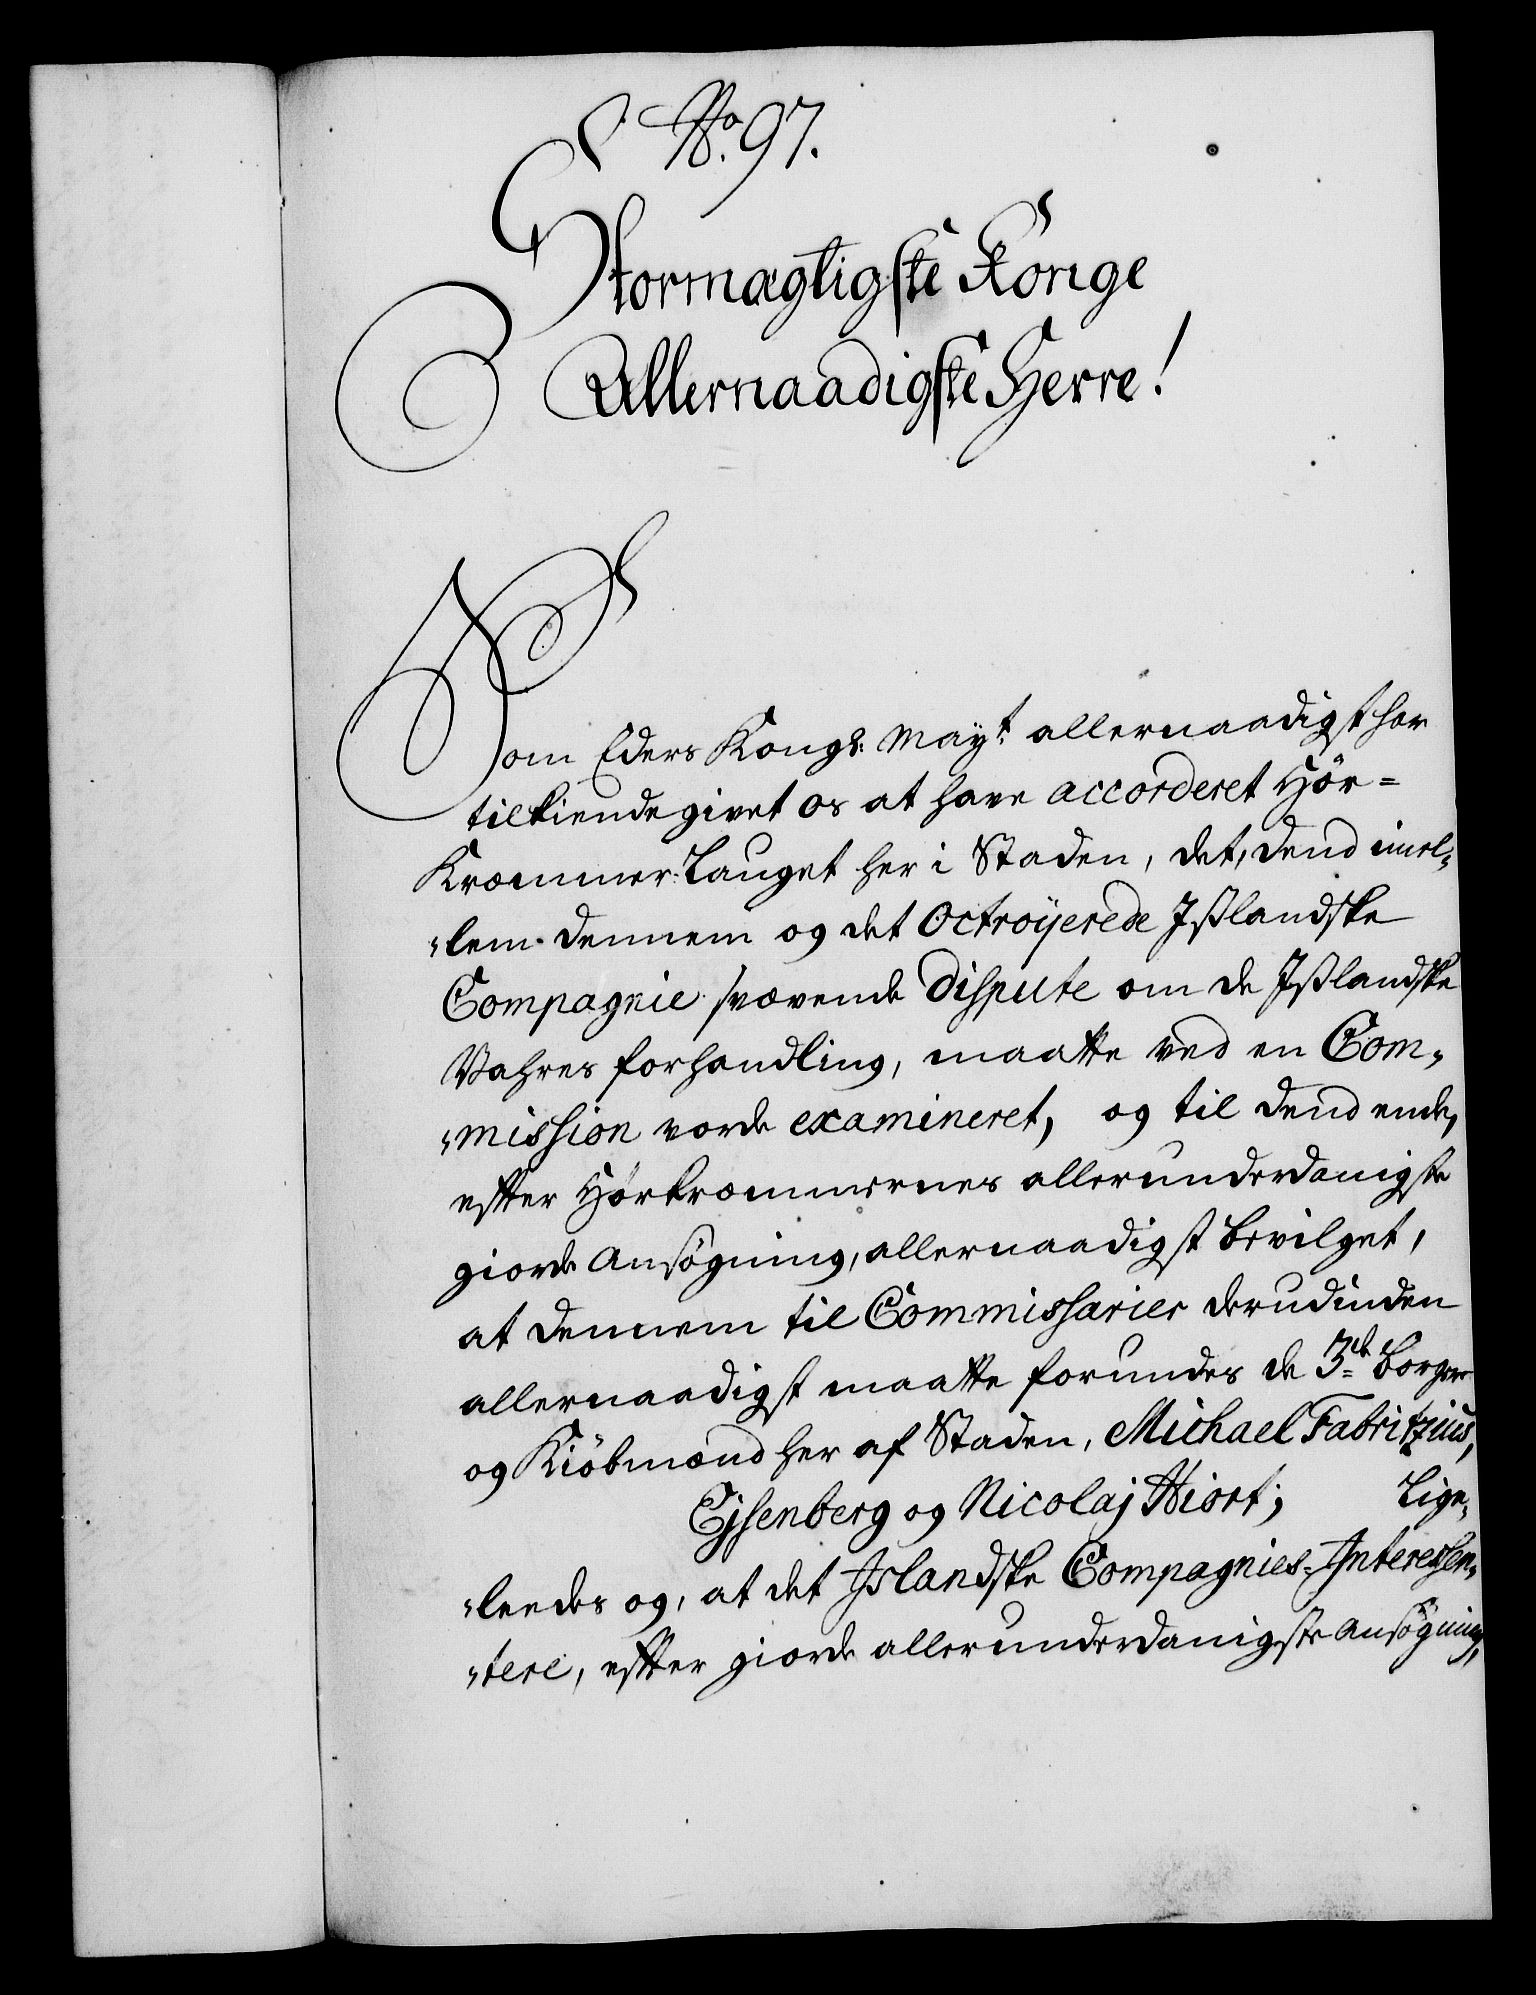 No. 97.
Stormægtigste Konge
Allernaadigste Herre!
Som Eders Kongl: May:t allernaadigst har
tilkiendegivet os at have accorderet Hör=
Kræmmer-Lauget her i Staden, det, dend imel„
„lem dennem og det Octroÿerede Ißlandske
Compagnie svævende Dispute om de Ißlandske
Vahres forhandling, maatte ved en Com„
„mission vorde examineret, og til dend ende,
efter Hörkræmmernes allerunderdanigste
giorde Ansögning, allernaadigst bevilget,
at dennem til Commissarier derudinden
allernaadigst maatte forundes de 3de borgere
og Kiöbmænd her af Staden, Michael Fabritzius,
Ejsenberg og Nicolaj Hiort; Lige„
„leedes og, at det Islandske Compagnies-Interessen„
„tere, efter giorde allerunderdanigste Ansögning,